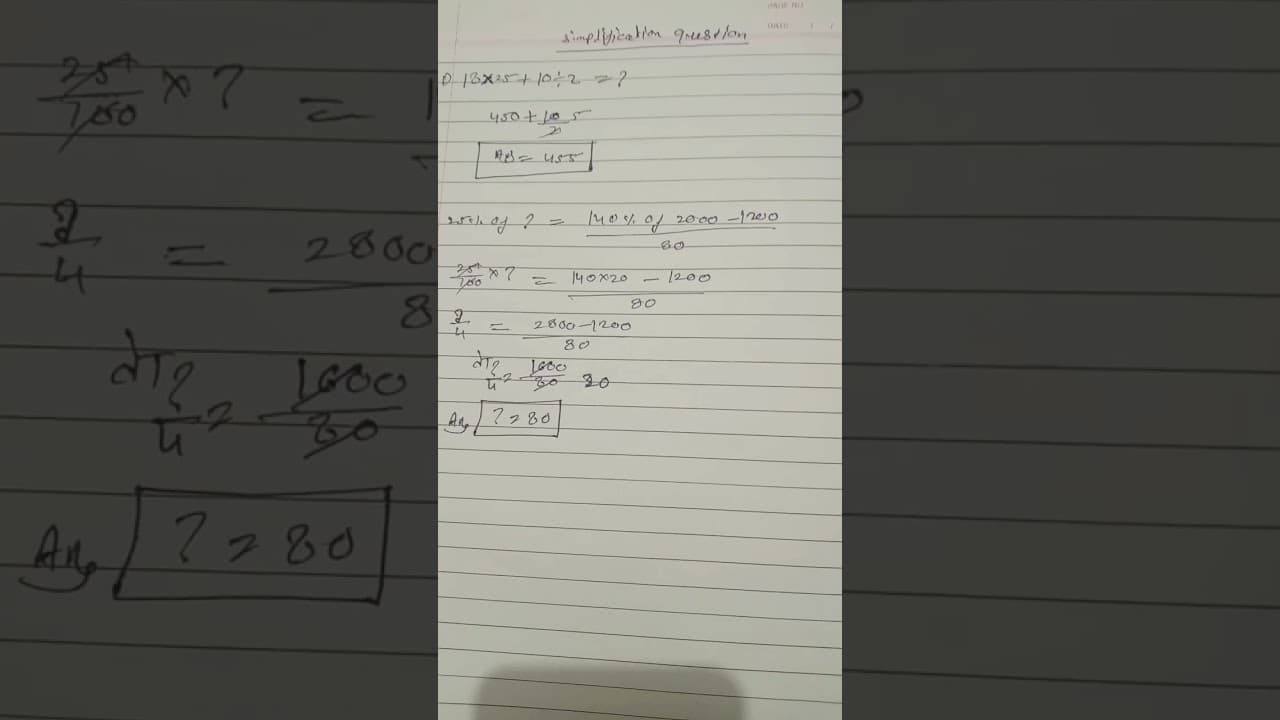 PAGE NO.
DATE
simplification question
1) 18×25+10÷2 = ?
450 + 10/2 5
Ans = 455
25% of ? = 140% of 2000 - 1200 / 80
25/100 × ? = 140×20 - 1200 / 80
?/4 = 2800-1200 / 80
?/4 = 1600/80 20
Ans ? = 80
25/100 × ? =
?/4 = 2800
8
?/4 = 1600/80
Ans ? = 80